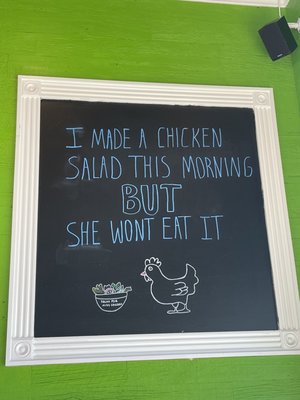 I MADE A CHICKEN
SALAD THIS MORNING
BUT
SHE WONT EAT IT